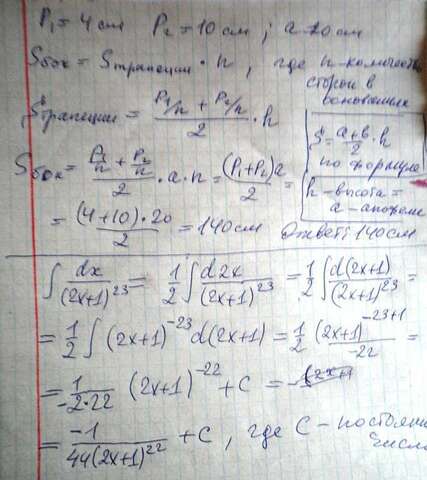 P₁ = 4 см P₂ = 10 см ; a = 20 см
Sбок = Sтрапеции · n , где n - количество
сторон в
основаниях
Sтрапеции = (P₁/n + P₂/n)/2 · h
S = (a+b)/2 · h
по формуле
Sбок = (P₁/n + P₂/n)/2 · a · n = (P₁+P₂)a/2 =
h - высота =
a - апофеме
= (4+10)·20/2 = 140 см Ответ: 140 см
∫ dx/(2x+1)^23 = 1/2 ∫ d2x/(2x+1)^23 = 1/2 ∫ d(2x+1)/(2x+1)^23 =
= 1/2 ∫ (2x+1)^-23 d(2x+1) = 1/2 (2x+1)^-23+1/-22 =
= 1/-2·22 (2x+1)^-22 + C =
= -1/44(2x+1)^22 + C , где C - постоян
число